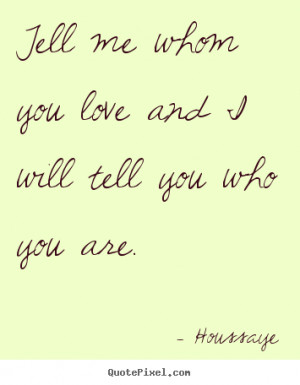 Tell me whom
you love and I
will tell you who
you are.
- Houssaye
QuotePixel.com